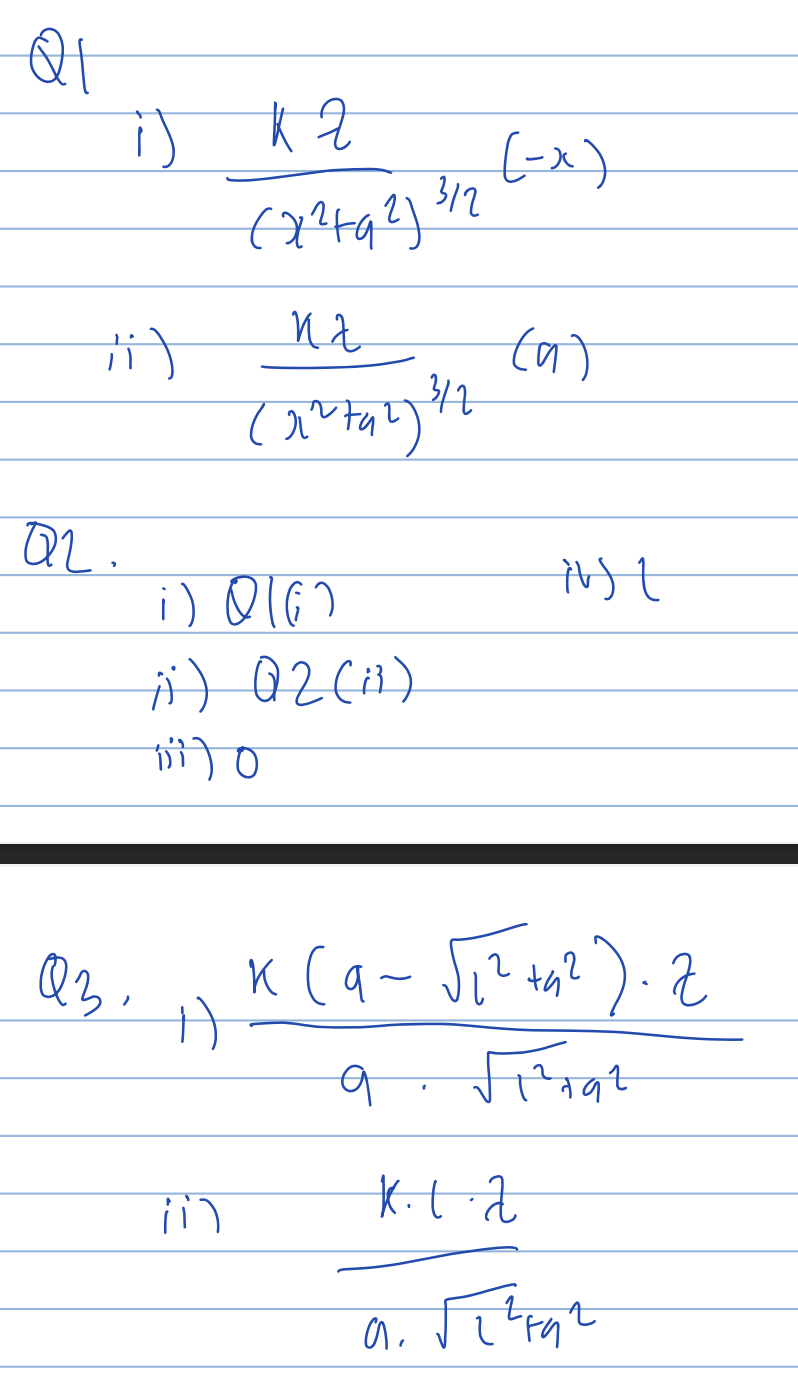 Q1
i) Kλ / (x²+a²)^3/2 (-x)
ii) Kλ / (x²+a²)^3/2 (a)
Q2.
i) Q1(i) iv) l
ii) Q2(ii)
iii) 0
Q3. i) K(a-√l²+a²).λ / a.√l²+a²
ii) K.l.λ / a.√l²+a²